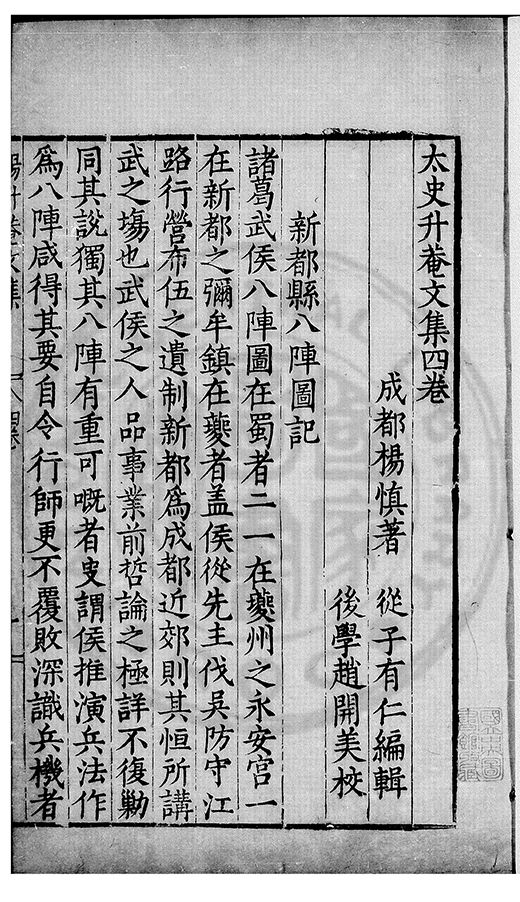 太史升菴文集四卷
成都楊慎著 從子有仁編輯
後學趙開美校
新都縣八陣圖記
諸葛武侯八陣圖在蜀者二一在夔州之永安宮一
在新都之彌牟鎮在夔者盖侯從先主伐吳防守江
路行營布伍之遺制新都爲成都近郊則其恒所講
武之塲也武侯之人品事業前哲論之極詳不復勦
同其說獨其八陣有重可嘅者史謂侯推演兵法作
爲八陣咸得其要自令行師更不覆敗深識兵機者